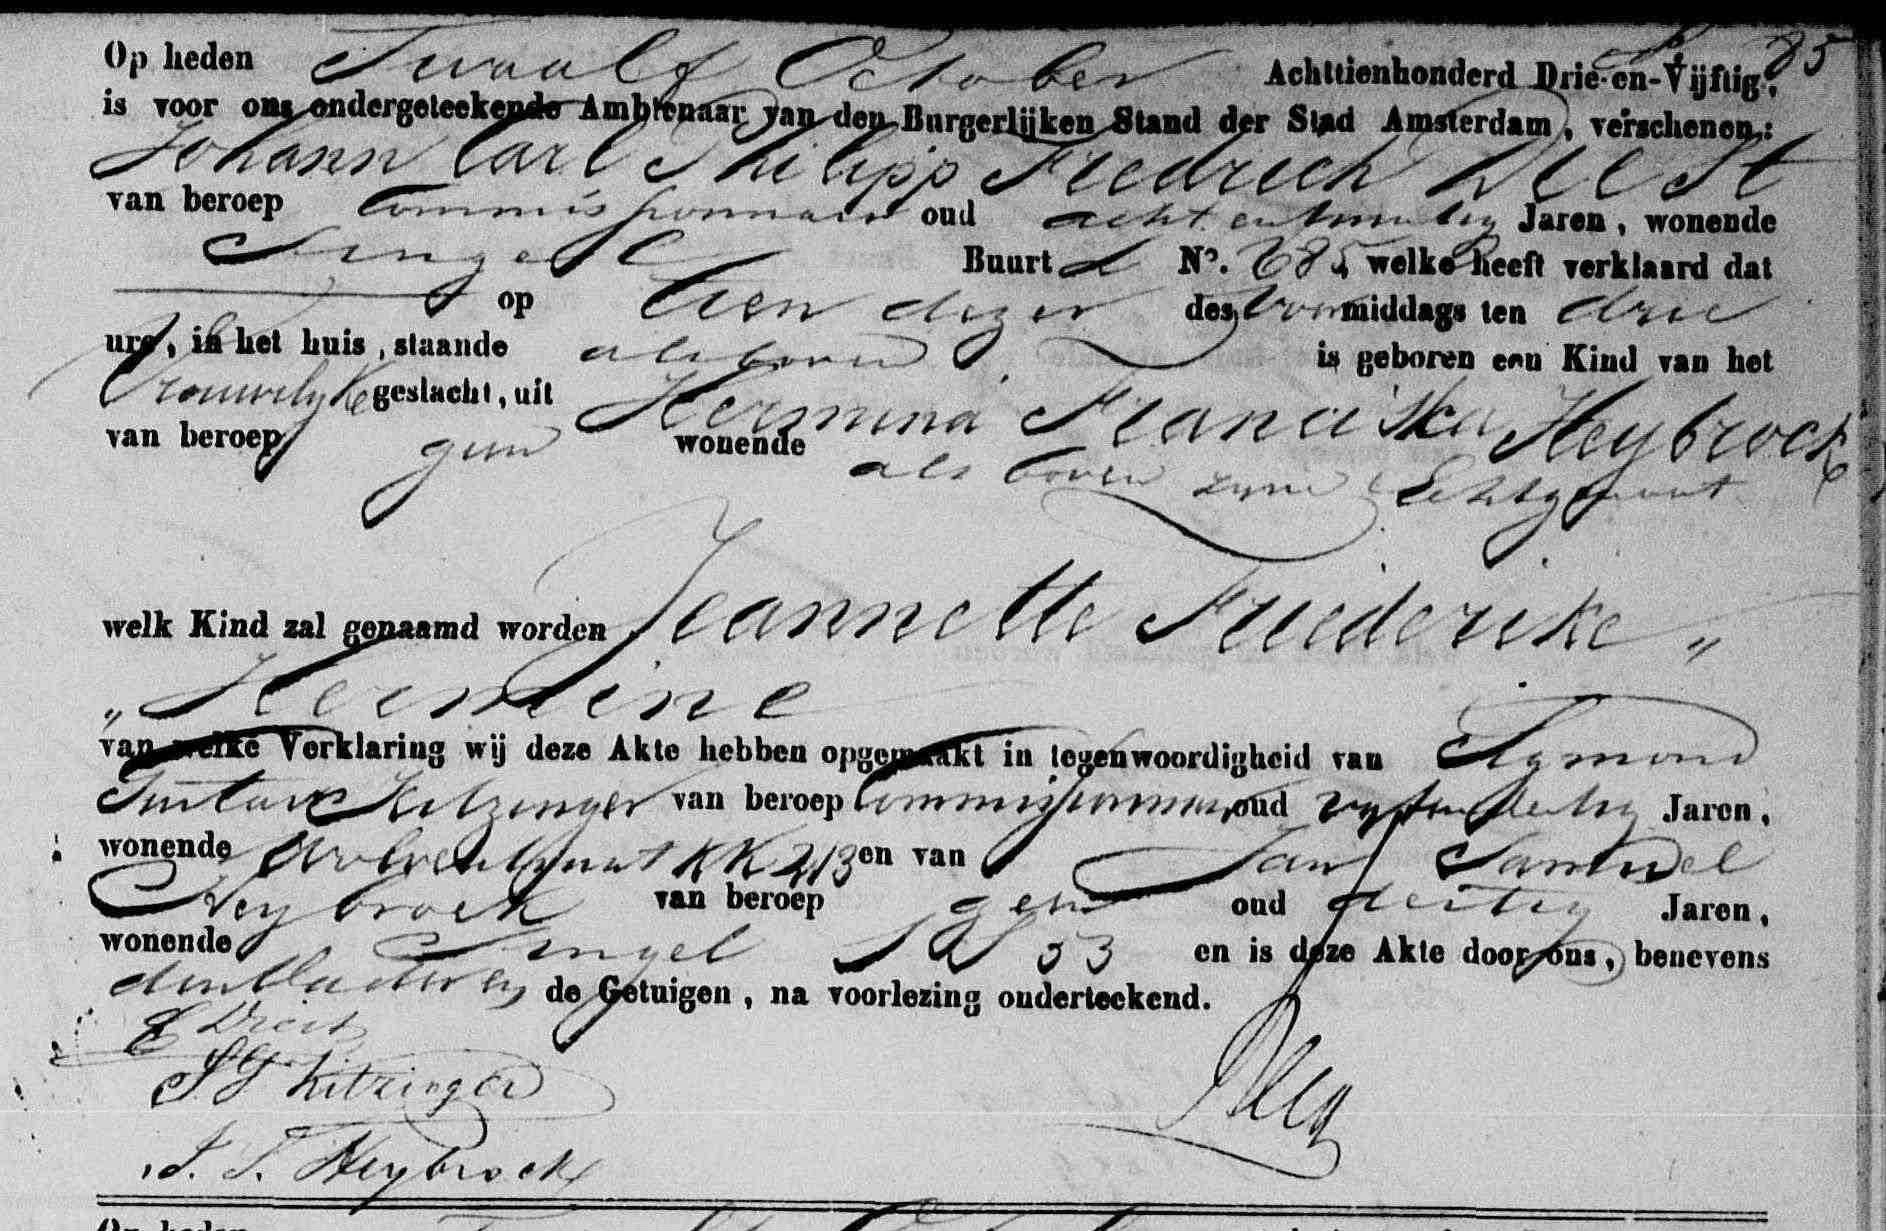 85
Op heden Twaalf October Achttienhonderd Drie-en-Vijftig,
is voor ons ondergeteekende Ambtenaar van den Burgerlijken Stand der Stad Amsterdam, verschenen:
Johann Carl Philipp Friedrich Diest
van beroep Commissionnair oud acht en twintig Jaren, wonende
Singel Buurt L No. 685 welke heeft verklaard dat
op tien dezer des voormiddags ten drie
ure, in het huis, staande als boven is geboren een Kind van het
Vrouwelyke geslacht, uit Hermina Franciska Heybrock
van beroep geen wonende als boven zyne Echtgenoot
welk Kind zal genaamd worden Jeannette Friederike „
„ Hermine
van welke Verklaring wij deze Akte hebben opgemaakt in tegenwoordigheid van Sigmond
Gustave Kitzinger van beroep Commissionnair oud vyf en dertig Jaren,
wonende KK 213 en van Jan Samuel
Heybrock van beroep geen oud dertig Jaren,
wonende Singel 53 en is deze Akte door ons, benevens
den Vader en de Getuigen, na voorlezing onderteekend.
C Diest
S G Kitzinger
J. S. Heybrock
Op heden